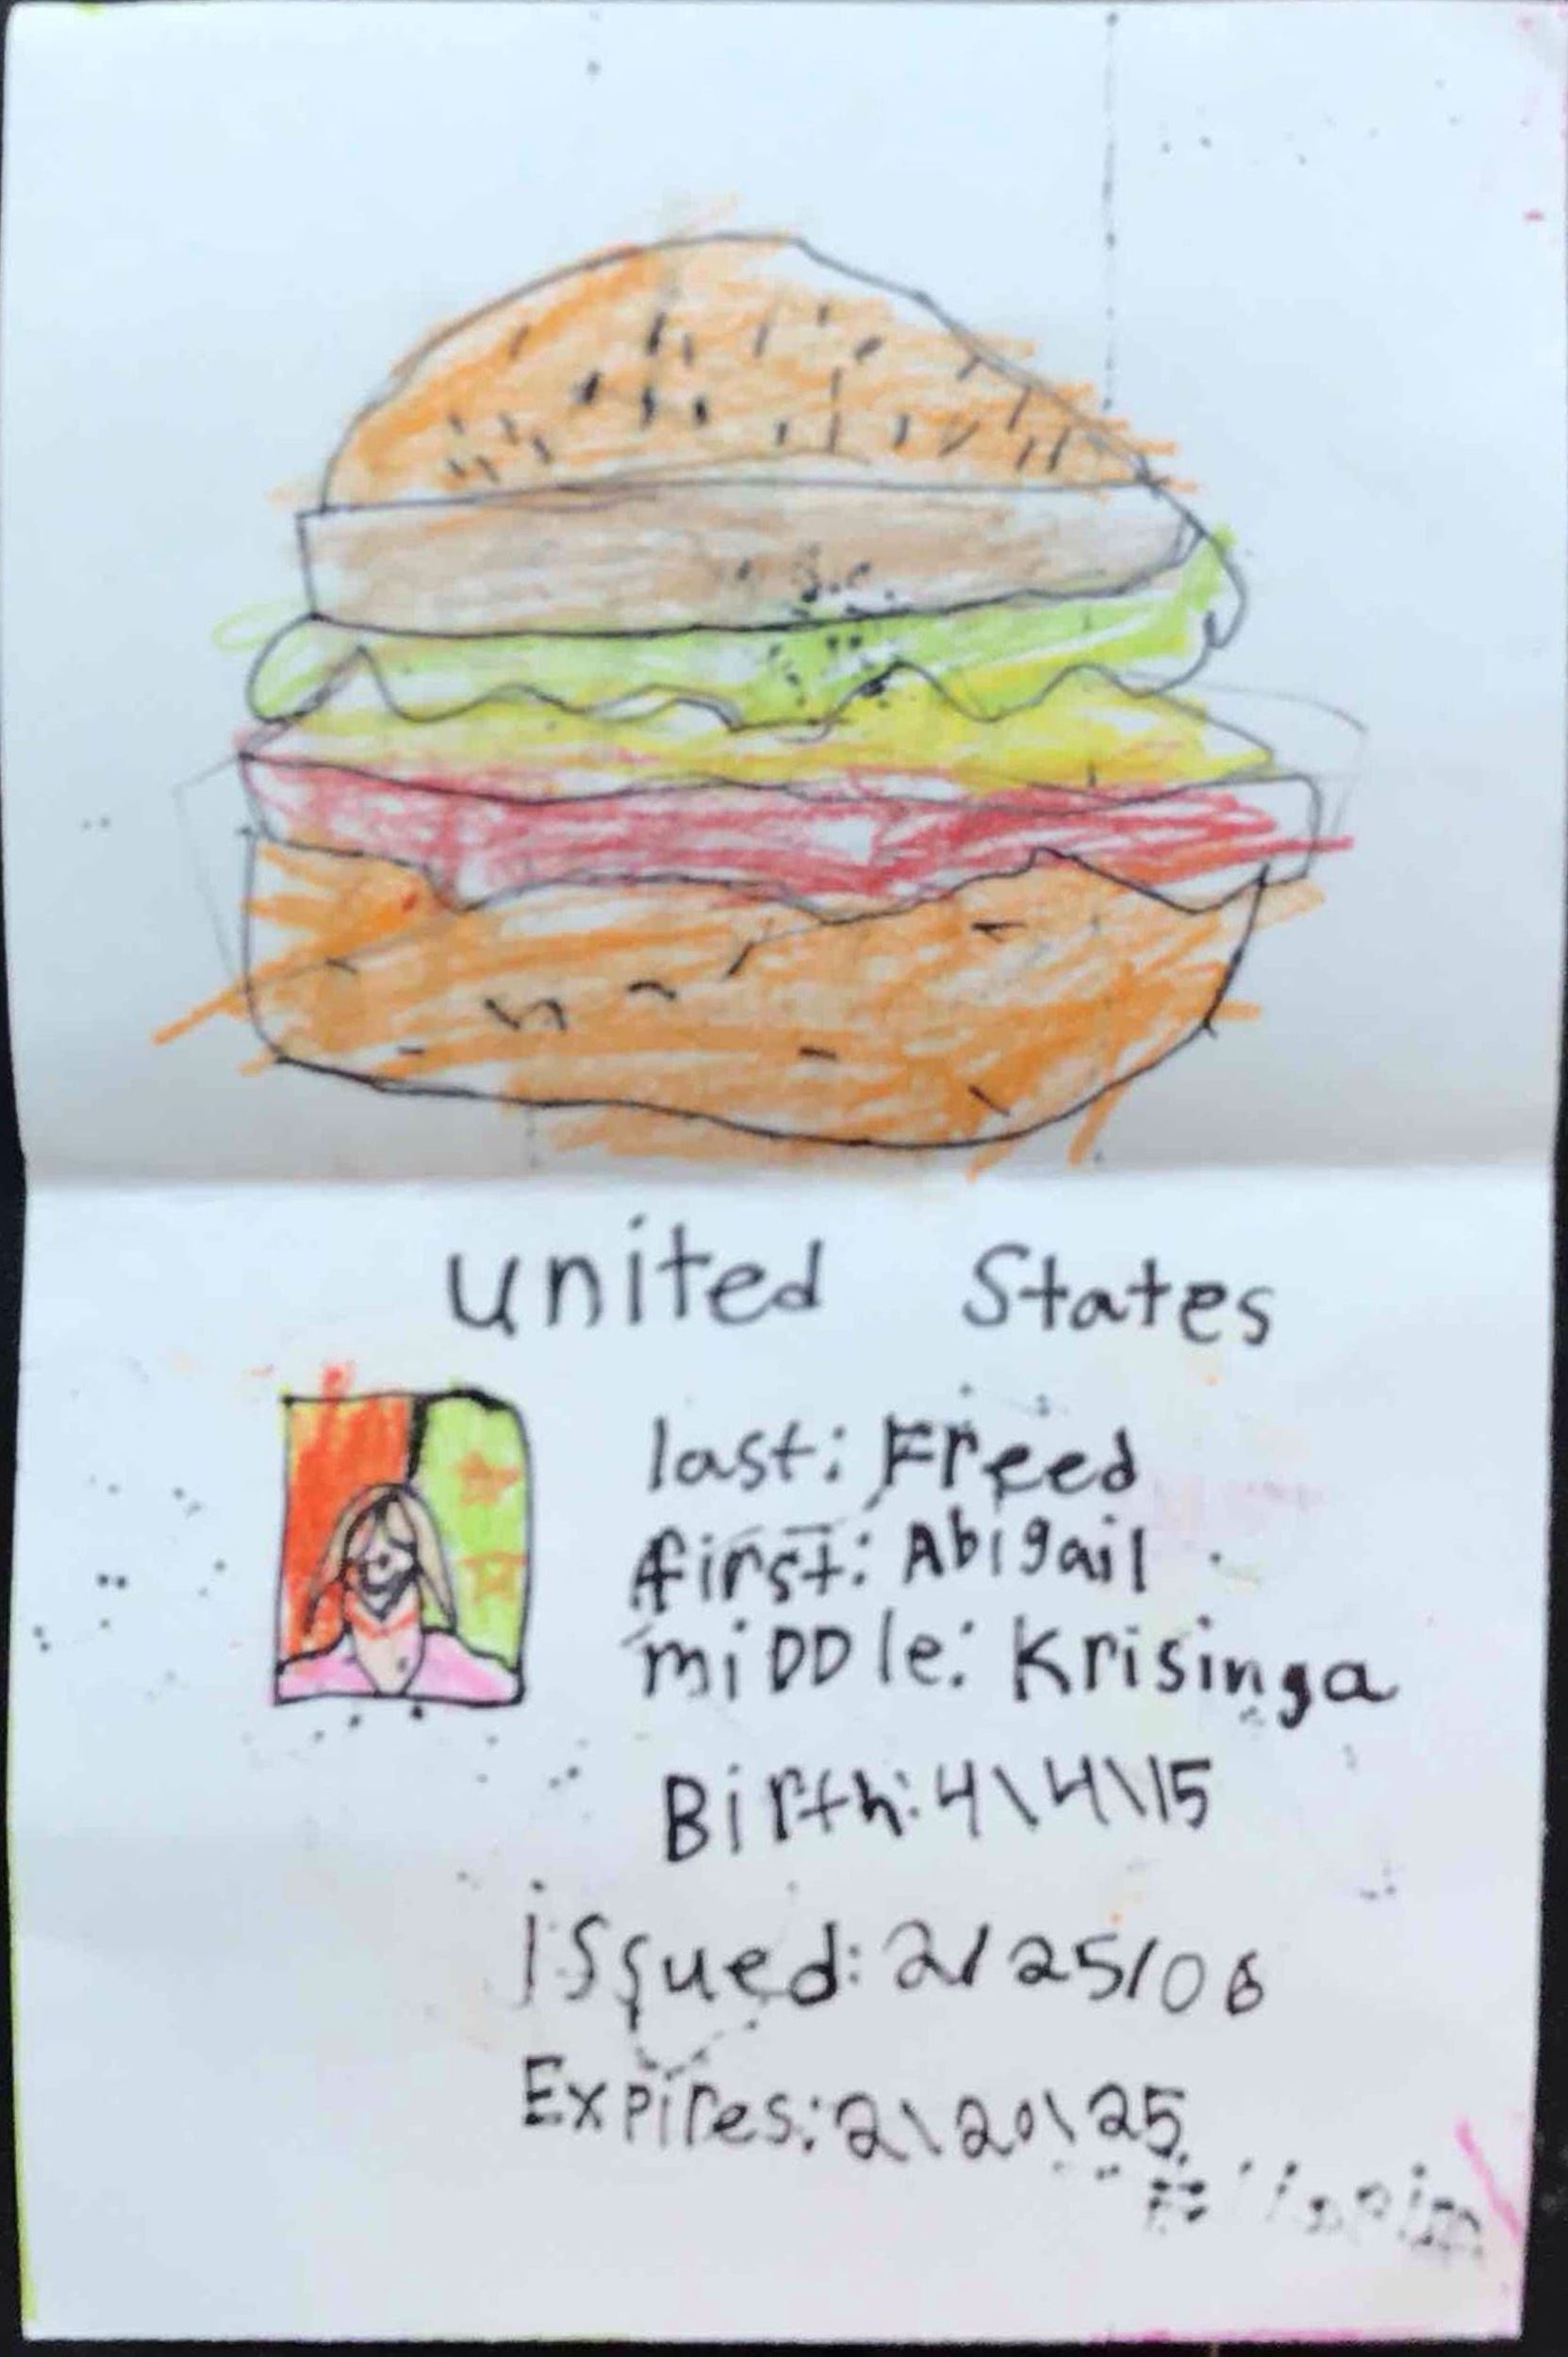 united States
last: Freed
first: Abigail
miDDle: Krisinga
Birth: 4\4\15
issued: 2/25/06
Expires: 2\20\25